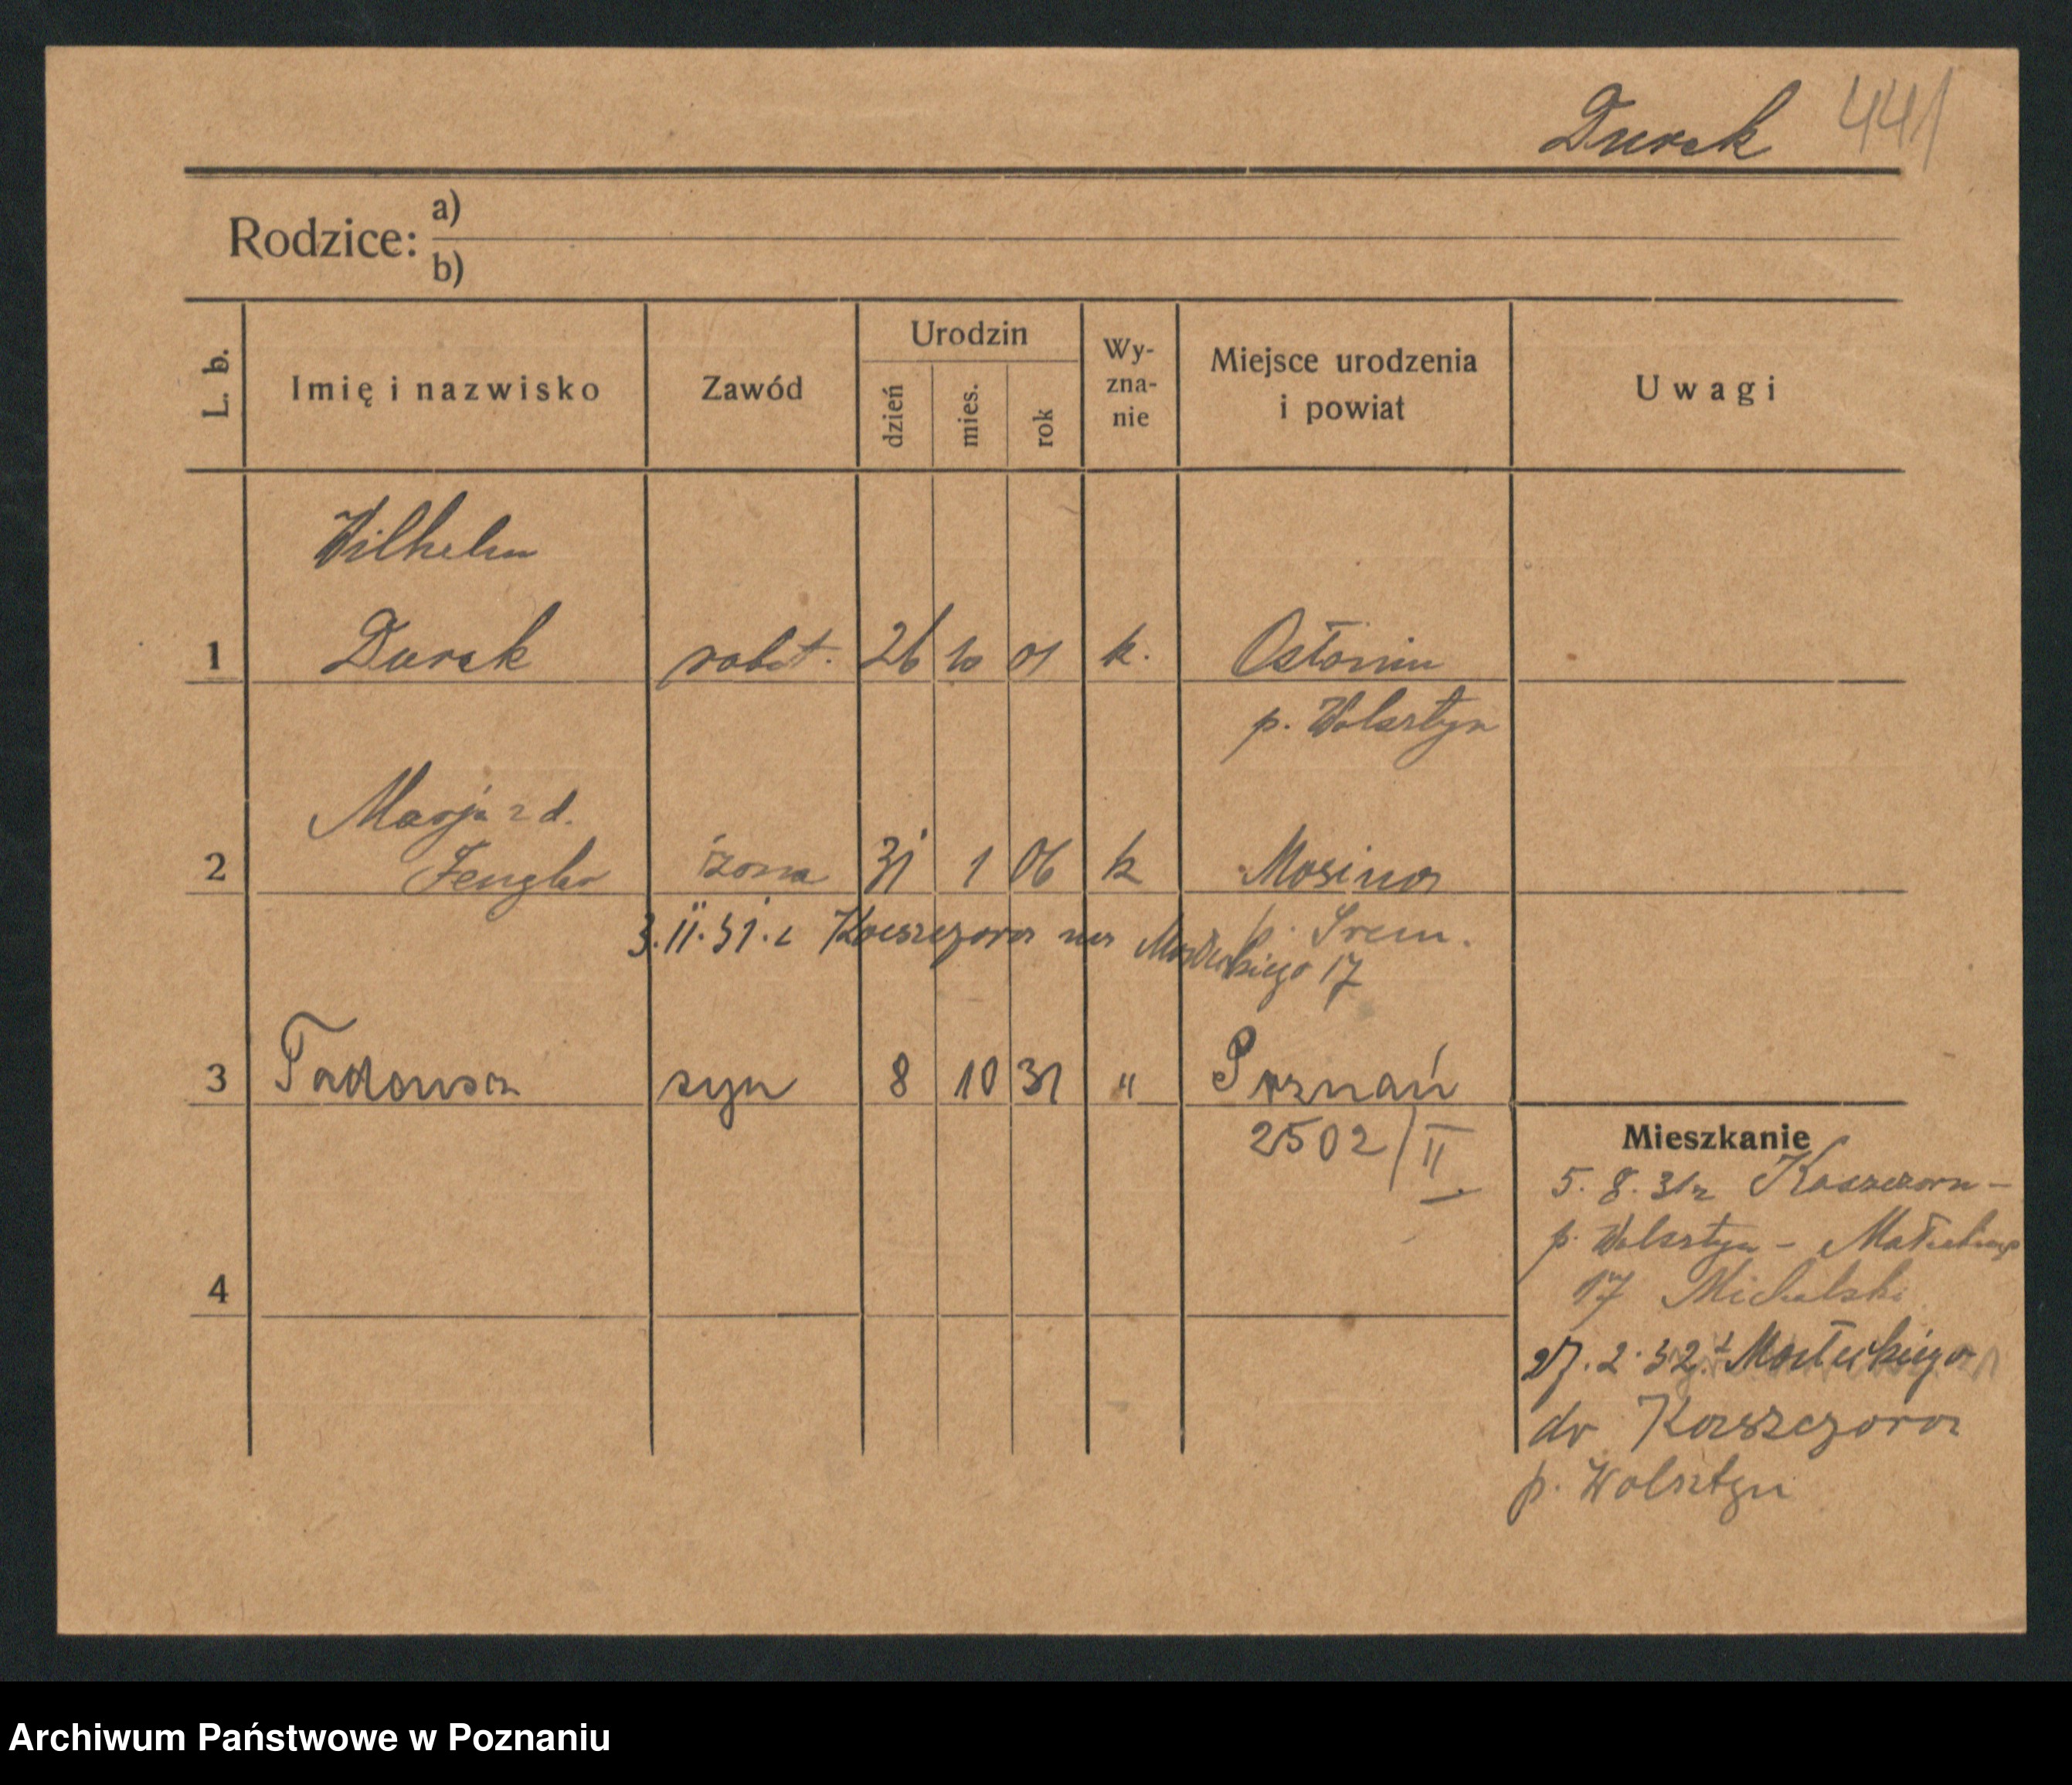 Durek 441
Rodzice: a)
b)
L. b. Imię i nazwisko Zawód Urodzin dzień mies. rok Wy-zna-nie Miejsce urodzenia i powiat Uwagi
Wilhelm
1 Durek robot. 26 10 01 k. Osłonin
p. Wolsztyn
Marja z d.
2 Fengler żona 31 1 06 k Mosina
p. Śrem.
3.II.31. z Kaszczora na Małeckiego 17
3 Tadeusz syn 8 10 31 " Poznań
2502/II
Mieszkanie
5. 8. 31 z Kaszczora -
p. Wolsztyn - Małeckiego
17 Michalski
4
27. 2. 32. z Małeckiego
do Kaszczora
p. Wolsztyn
Archiwum Państwowe w Poznaniu